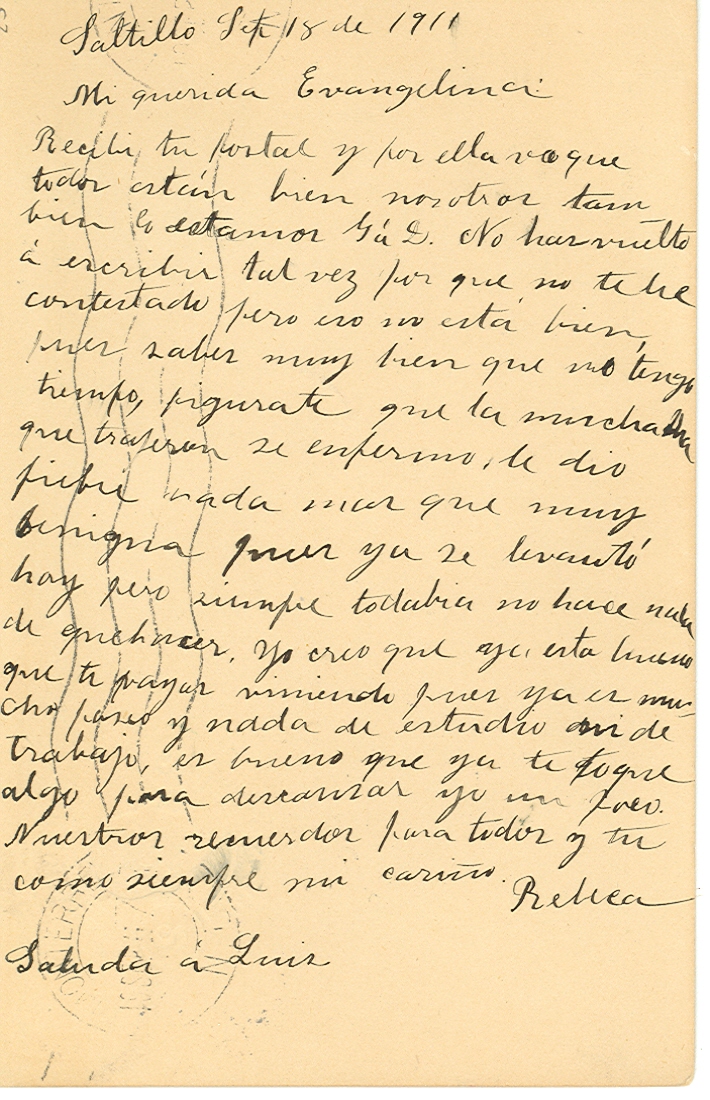 Saltillo Set 18 de 1911
Mi querida Evangelina:
Recibi tu postal y por ella veo que
todos están bien nosotros tam
bien lo estamos G. á D. No has vuelto
á escribir tal vez por que no te he
contestado pero eso no está bien,
pues sabes muy bien que no tengo
tiempo, figurate que la muchacha
que trajeron se enfermo, le dio
fiebre nada mas que muy
benigna pues ya se levantó
hoy pero siempre todabia no hace nada
de quehacer. Yo creo que ya esta bueno
que te vayas viniendo pues ya es mu-
cho paseo y nada de estudio ni de
trabajo, es bueno que ya te toque
algo para descansar yo un poco.
Nuestros recuerdos para todos y tu
como siempre mi cariño.
Rebeca
Saluda á Luis